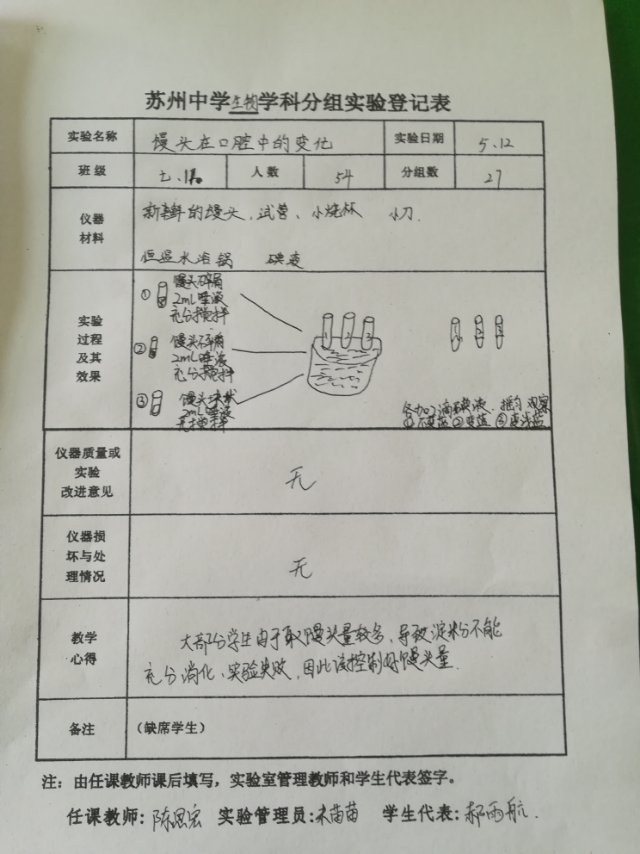 苏州中学生物学科分组实验登记表
实验名称 馒头在口腔中的变化 实验日期 5.12
班级 七. 人数 54 分组数 27
仪器材料 新鲜的馒头、试管、小烧杯 小刀.
恒温水浴锅 碘液
实验过程及其效果
① 馒头碎屑
2mL唾液
充分搅拌
② 馒头碎屑
2mL
充分搅拌
③ 馒头块状
2mL唾液
各加2滴碘液、摇匀 观察
① 不变蓝 ② 变蓝 ③ 变浅蓝
仪器质量或
实验
改进意见
无
仪器损
坏与处
理情况
无
教学
心得
大部分学生由于取馒头量较多、导致淀粉不能
充分消化、实验失败, 因此该控制好馒头量.
备注 (缺席学生)
注：由任课教师课后填写，实验室管理教师和学生代表签字。
任课教师: 陈思宏 实验管理员: 苗苗 学生代表: 郝雨航.